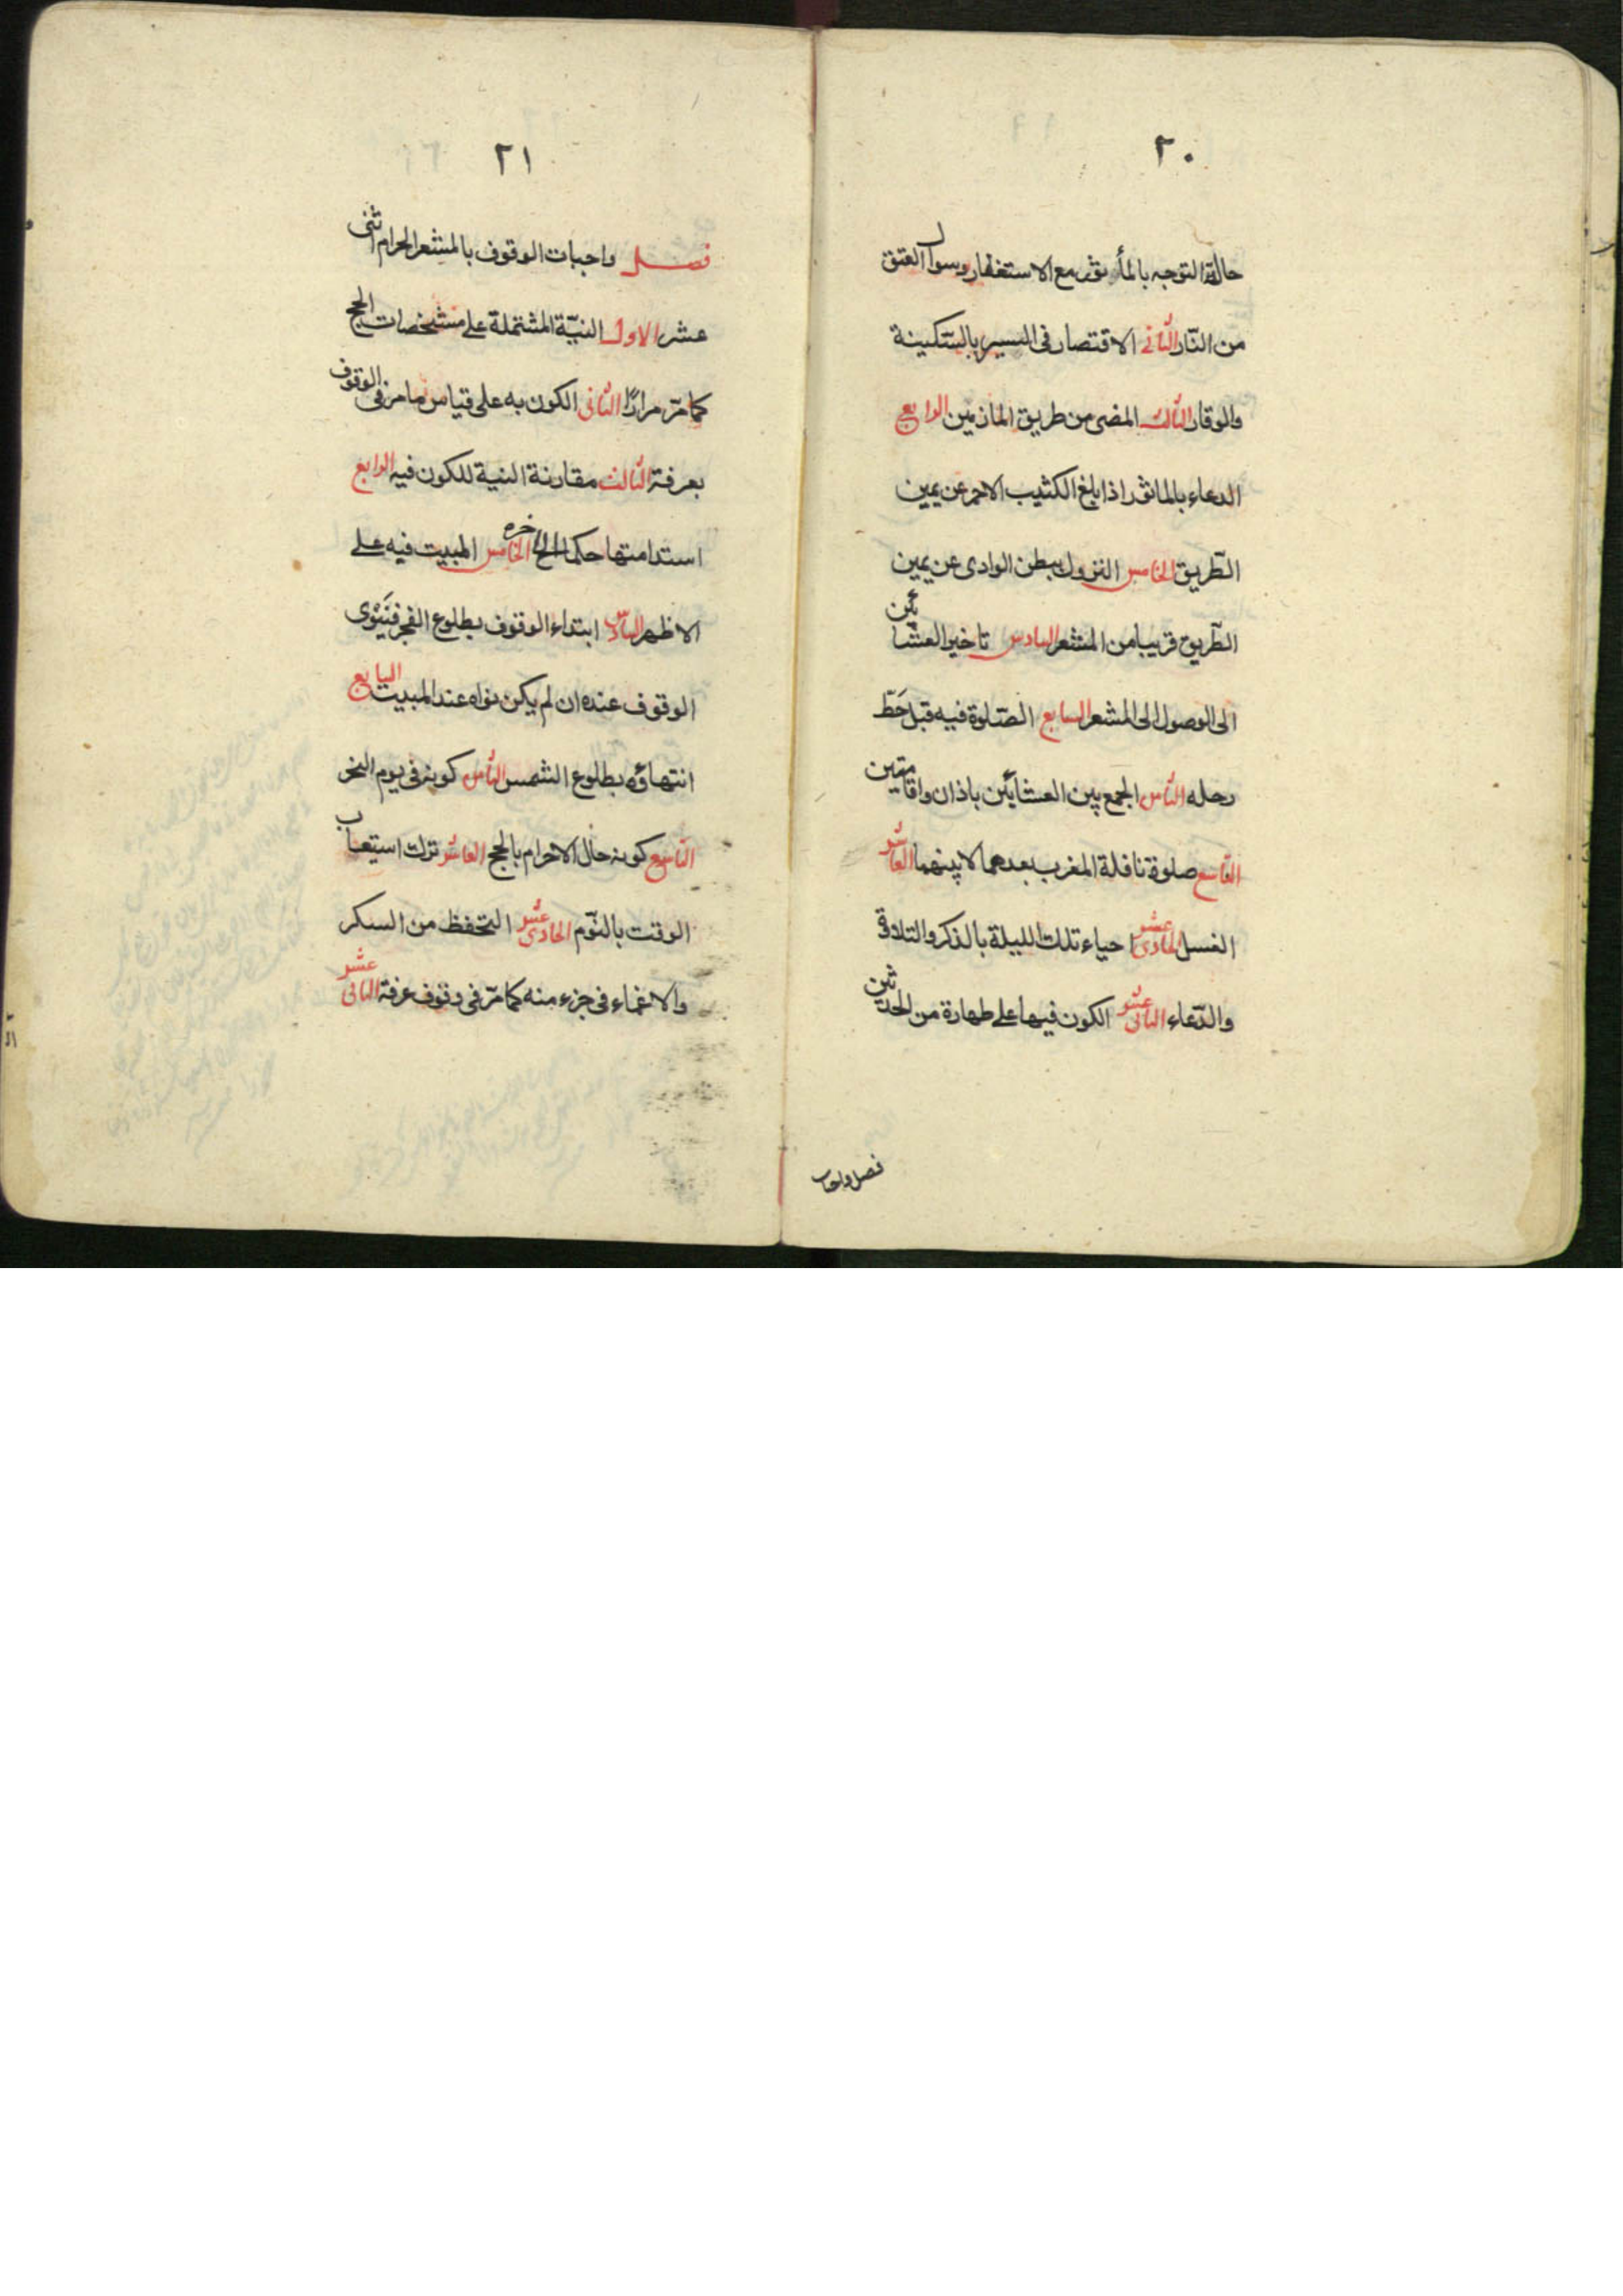 ٢٠
حالة التوجه بالمأثور مع الاستغفار وسوال العتق
من النّار الثّانى الاقتصار فى السير بالسّكينة
والوقار الثّالث المضى من طريق المازمين الرابع
الدعاء بالماثور اذا بلغ الكثيب الاحمر عن يمين
الطّريق الخامس النزول ببطن الوادى عن يمين
الطّريق قريبا من المشعر السادس تاخير العشائين
الى الوصول الى المشعر السابع الصّلوة فيه قبل حَطّ
رحله الثّامن الجمع بين العشائين باذان واقامتين
التّاسع صلوة نافلة المغرب بعدهما لا بينهما العاشر
الغسل الحادى عشر احياء تلك الليلة بالذكر والتلاوة
والدّعاء الثانى عشر الكون فيها على طهارة من الحدثين
فصل واجبات
٢١
فصل واجبات الوقوف بالمشعر الحرام اثنى
عشر الاول النيّة المشتملة على مشخصات الحج
كما مرّ مرارًا الثّانى الكون به على قياس ما مر فى الوقوف
بعرفة الثّالث مقارنة النية للكون فيه الرابع
استدامتها حكما الى اخره الخامس المبيت فيه على
الاظهر السّادس ابتداء الوقوف بطلوع الفجر فَيَنْوى
الوقوف عنده ان لم يكن نواه عند المبيت السابع
انتهاؤه بطلوع الشمس الثّامن كونه فى يوم النحر
التّاسع كونه حال الاحرام بالحج العاشر ترك استيعاب
الوقت بالنّوم الحادى عشر التحفظ من السكر
والاغماء فى جزء منه كما مرّ فى وقوف عرفة الثانى عشر